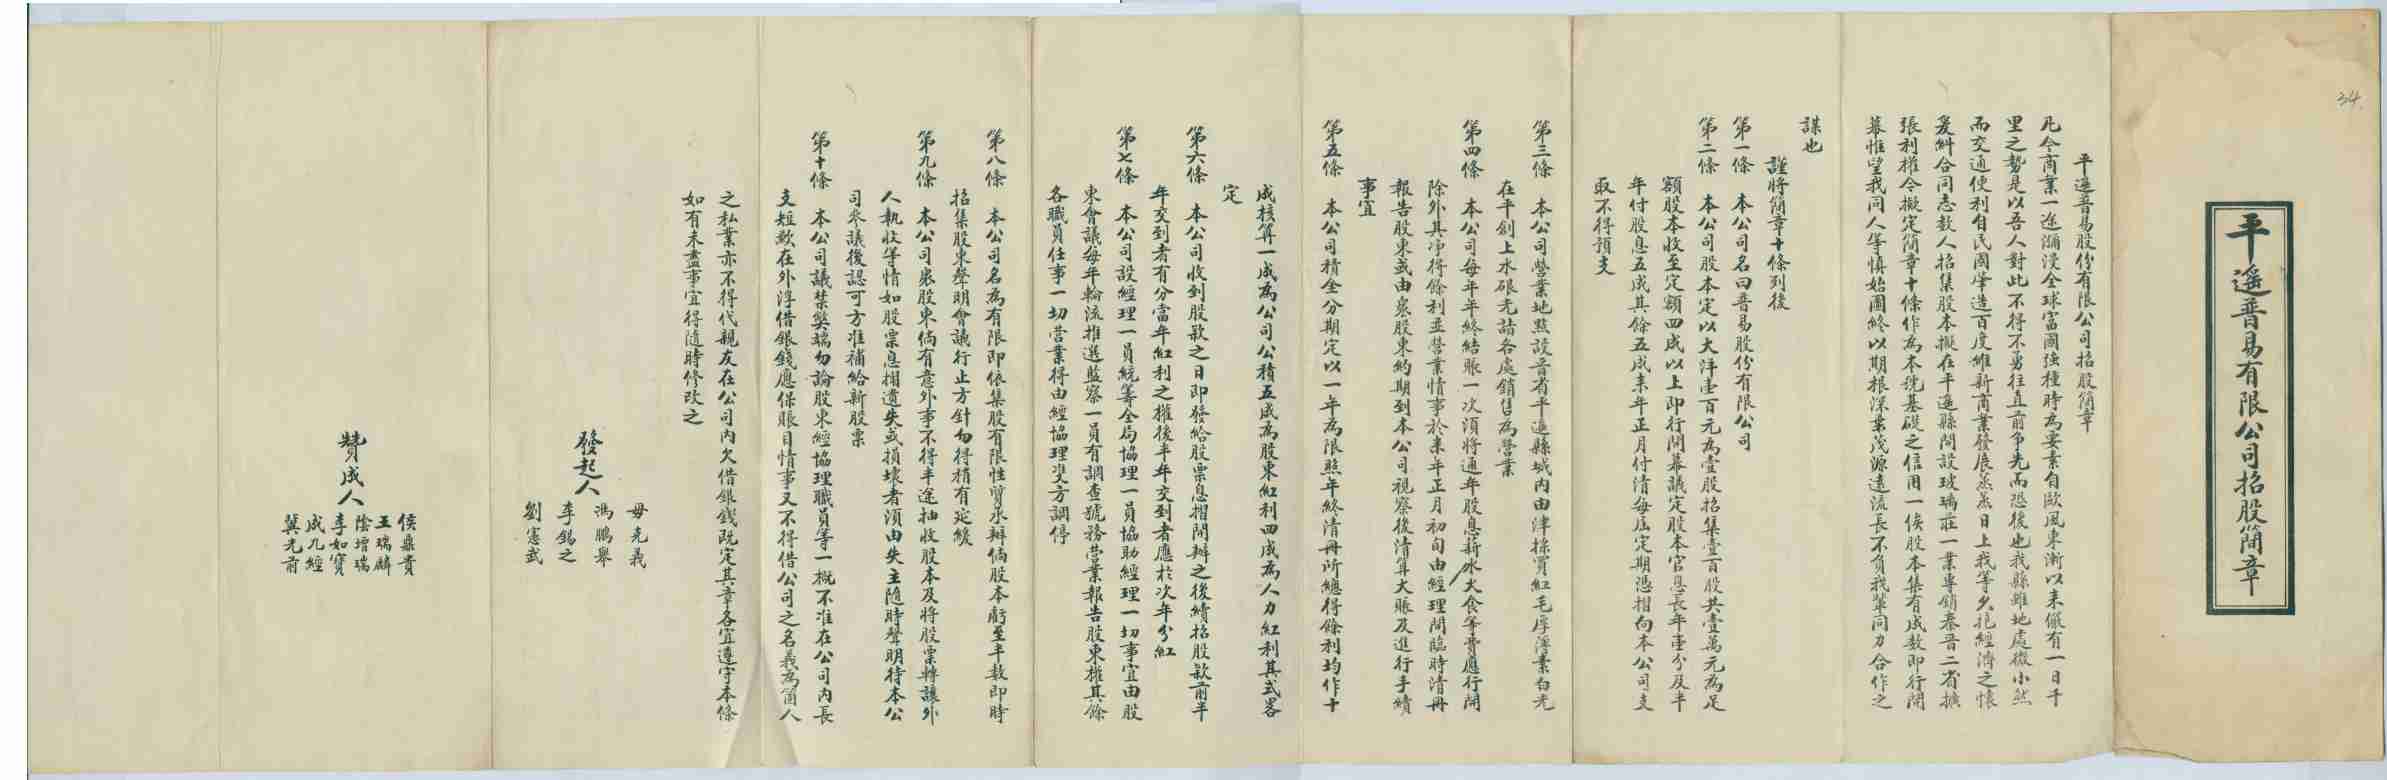 34
平遥普易有限公司招股簡章
平遥普易股份有限公司招股簡章
凡今商業一途瀰漫全球富國強種時為要素自歐風東漸以来儼有一日千
里之勢是以吾人對此不得不勇往直前争先而恐後也我縣雖地處微小然
而交通便利自民國肇造百度維新商業發展蒸蒸日上我等久抱經濟之懷
爰糾合同志数人招集股本擬在平遥縣開設玻璃莊一業專銷秦晋二省擴
張利權今擬定簡章十條作為本號基礎之信用一俟股本集有成数即行開
幕惟望我同人等慎始圖終以期根深葉茂源遠流長不負我輩同力合作之
謀也
謹将簡章十條列後
第一條 本公司名曰普易股份有限公司
第二條 本公司股本定以大洋壹百元為壹股招集壹百股共壹萬元為足
額股本收至定額四成以上即行開幕議定股本官息長年壹分及半
年付股息五成其餘五成来年正月付清每届定期憑摺向本公司支
取不得預支
第三條 本公司營業地點設晋省平遥縣城内由津採買紅毛厚薄素白光
在平劍上水銀光請各處銷售為營業
第四條 本公司每年年終結賬一次須將通年股息薪水火食等費應行開
除外其净得餘利並營業情事於来年正月初旬由經理開臨時清册
報告股東或由衆股東約期到本公司視察後清算大賬及進行手續
事宜
第五條 本公司積金分期定以一年為限照年終清册所總得餘利均作十
成核算一成為公司公積五成為股東紅利四成為人力紅利其式畧
定
第六條 本公司收到股款之日即發給股票息摺開辦之後續招股款前半
年交到者有分當年紅利之權後半年交到者應於次年分紅
第七條 本公司設經理一員統筹全局協理一員協助經理一切事宜由股
東會議每年輪流推選監察一員有調查號務營業報告股東權其餘
各職員任事一切營業得由經協理雙方調停
第八條 本公司名為有限即依集股有限性質承辦倘股本虧至半数即時
招集股東聲明會議行止方針勿得稍有延緩
第九條 本公司衆股東倘有意外事不得半途抽收股本及將股票轉讓外
人執收等情如股票息摺遺失或損壞者須由失主隨時聲明待本公
司参議後認可方准補給新股票
第十條 本公司議禁弊端勿論股東經協理職員等一概不准在公司内長
支短歉在外浮借銀錢應保賬目情事又不得借公司之名義為個人
之私業亦不得代親友在公司内欠借銀錢既定其章各宜遵守本條
如有未盡事宜得隨時修改之
發起人
毋克義
馮鵬舉
李錫之
劉憲武
贊成人
侯鼎貴
王瑞麟
陰增瑞
李如寳
成九經
冀光前